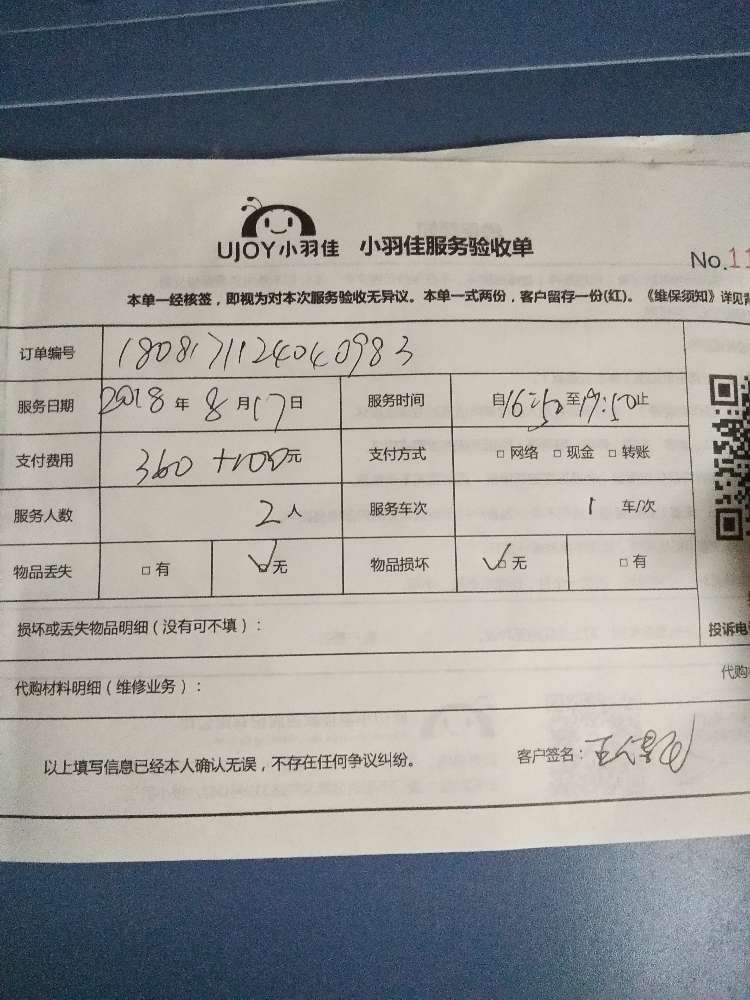 UJOY小羽佳 小羽佳服务验收单
No.11
本单一经核签，即视为对本次服务验收无异议。本单一式两份，客户留存一份(红)。《维保须知》详见背
订单编号 1808171124040983
服务日期 2018年8月17日 服务时间 自16:50至19:50止
支付费用 360+100元 支付方式 □网络 □现金 □转账
服务人数 2人 服务车次 1车/次
物品丢失 □有 ☑无 物品损坏 ☑无 □有
损坏或丢失物品明细（没有可不填）：
投诉电
代购材料明细（维修业务）：
代购
以上填写信息已经本人确认无误，不存在任何争议纠纷。 客户签名：